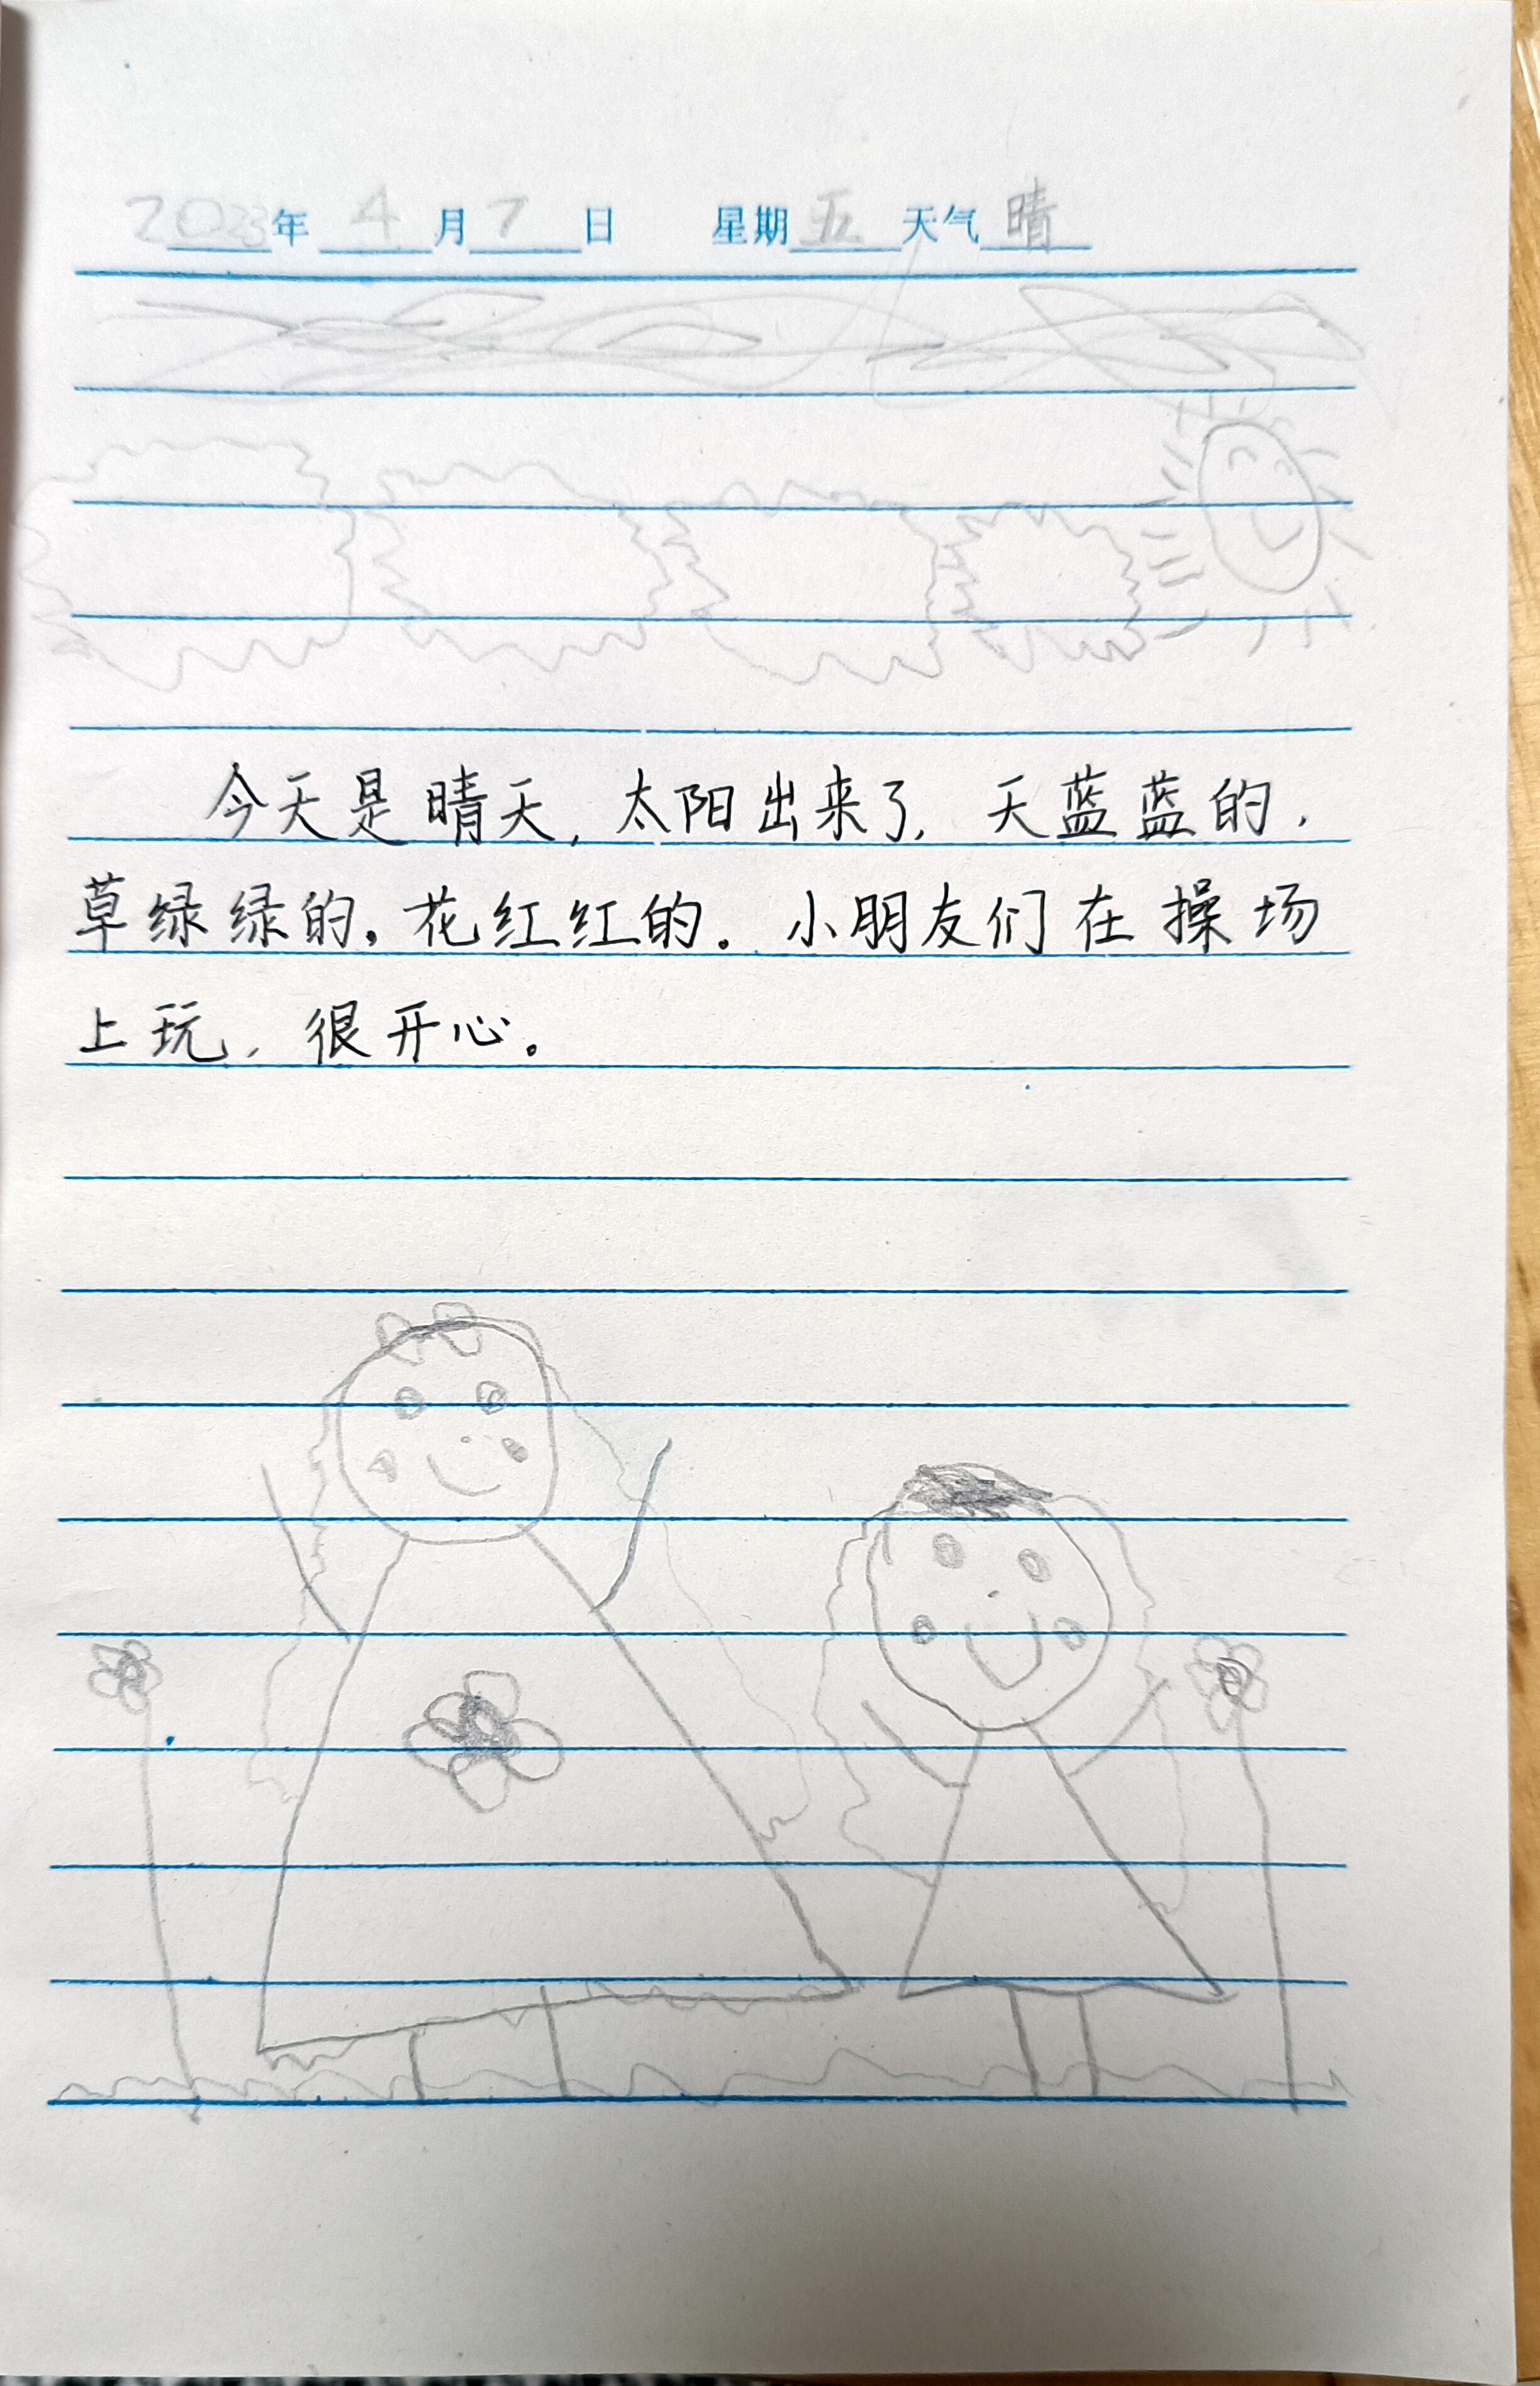 2023年 4月7日 星期五 天气晴
今天是晴天,太阳出来了,天蓝蓝的,
草绿绿的,花红红的。小朋友们在操场
上玩,很开心。